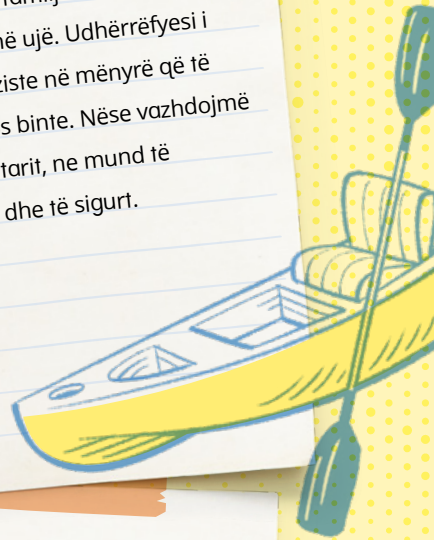 në ujë. Udhërrëfyesi i
në mënyrë që të
binte. Nëse vazhdojmë
ne mund të
dhe të sigurt.